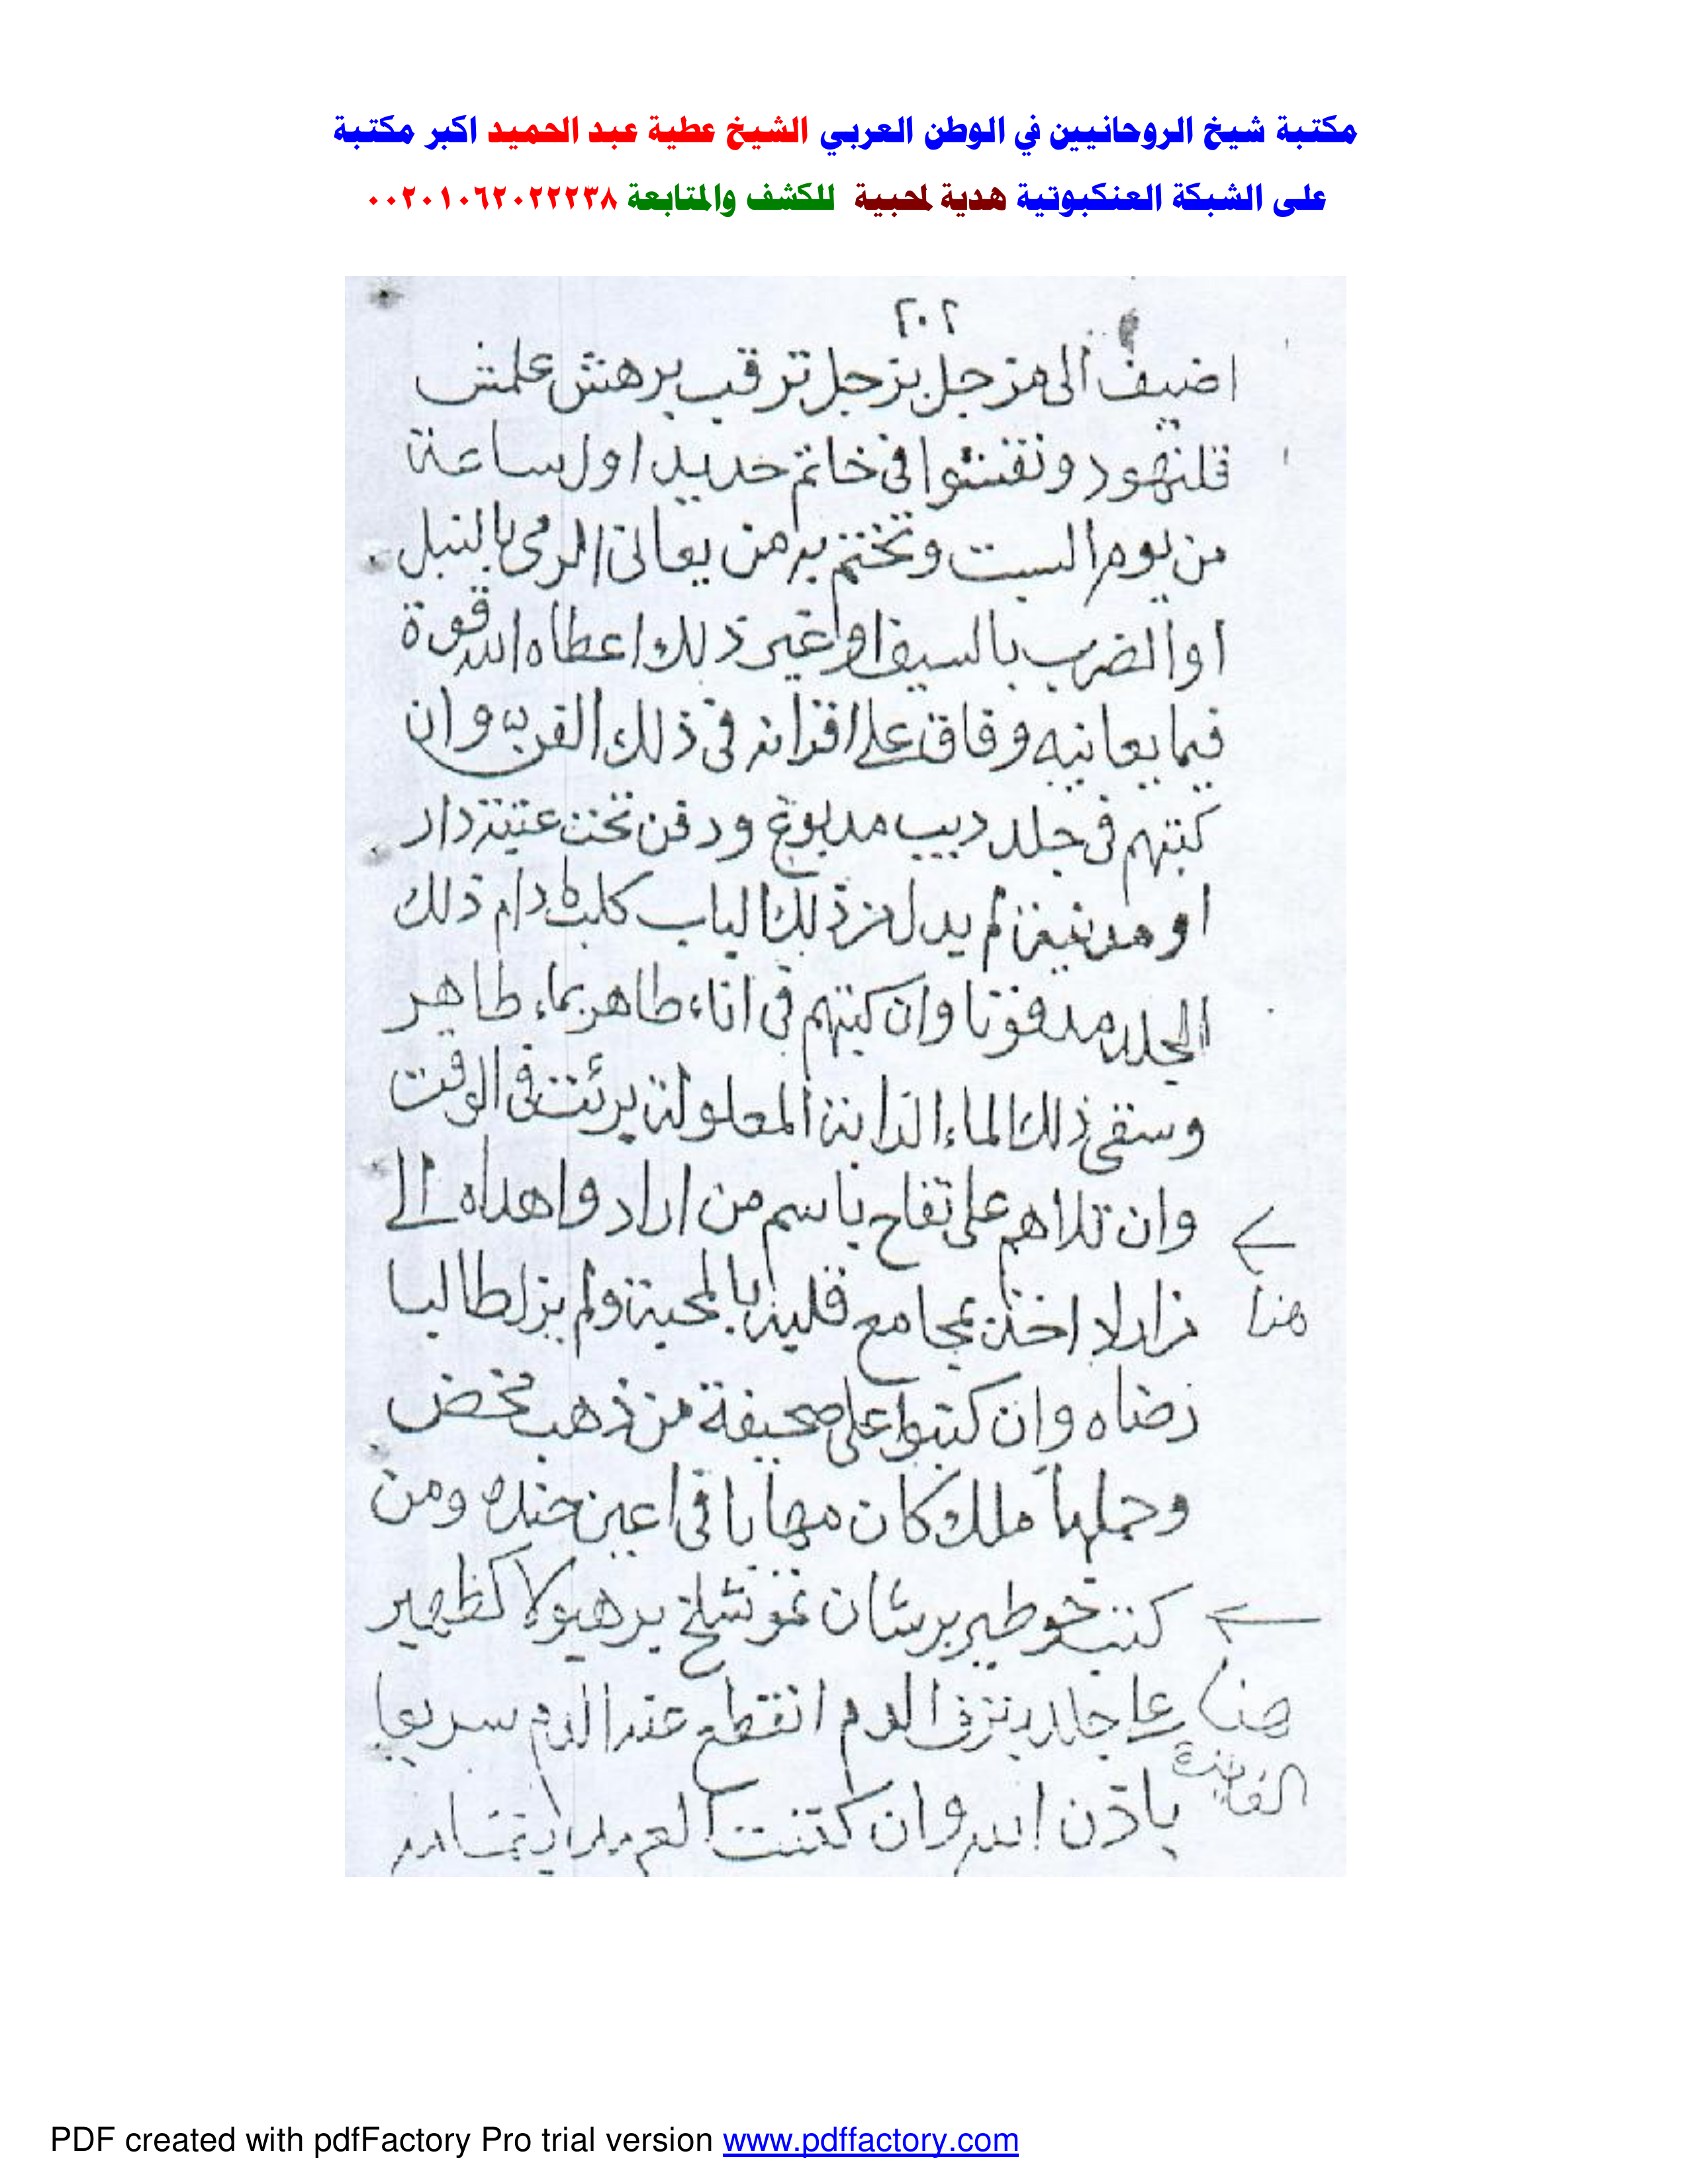 مكتبة شيخ الروحانيين في الوطن العربي الشيخ عطية عبد الحميد اكبر مكتبة
على الشبكة العنكبوتية هدية لمحبية للكشف والمتابعة ٠٠٢٠١٠٦٢٠٢٢٢٣٨
٢٠٢
اضيف الى مزجل بزجل ترقب برهش علمش
قلنهود ونقشوا في خاتم حديد اول ساعة
من يوم السبت وتختم به من يعانى الرمى بالنبل
او الضرب بالسيف او غير ذلك اعطاه الله قوة
فيما يعانيه وفاق على اقرانه فى ذلك الفن وان
كتبهم فى جلد ديب مدبوغ ودفن تحت عتبة دار
او مدينة لم يدخل ذلك الباب كلب دام ذلك
الجلد مدفونا وان كتبهم فى اناء طاهر بماء طاهر
وسقى ذلك الماء الدابة المعلولة برئت فى الوقت
وان تلاهم على تفاح باسم من اراد واهداه الى
هنا
اخذ بمجامع قلبه بالمحبة ولم يزل طالبا
رضاه وان كتبوا على صحيفة من ذهب محض
وحملها ملك كان مهابا فى اعين جنده ومن
كتب خوطير برشان نموشلخ برهيولا كظهير
هنا
على جلد ينزف الدم انقطع عنه الدم سريعا
الفايدة
باذن الله وان كتبت
PDF created with pdfFactory Pro trial version www.pdffactory.com